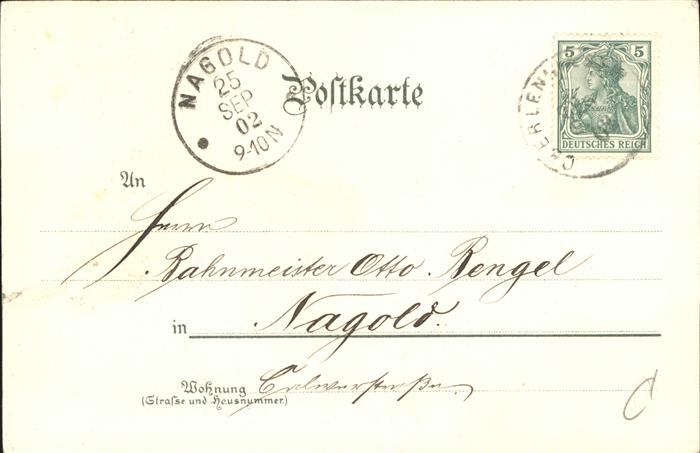 NAGOLD
25
SEP
02
9-10N
Postkarte
5 5
DEUTSCHES REICH
An
Herrn
Bahnmeister Otto Bengel
in Nagold.
Wohnung Calwerstraße
(Strasse und Hausnummer)